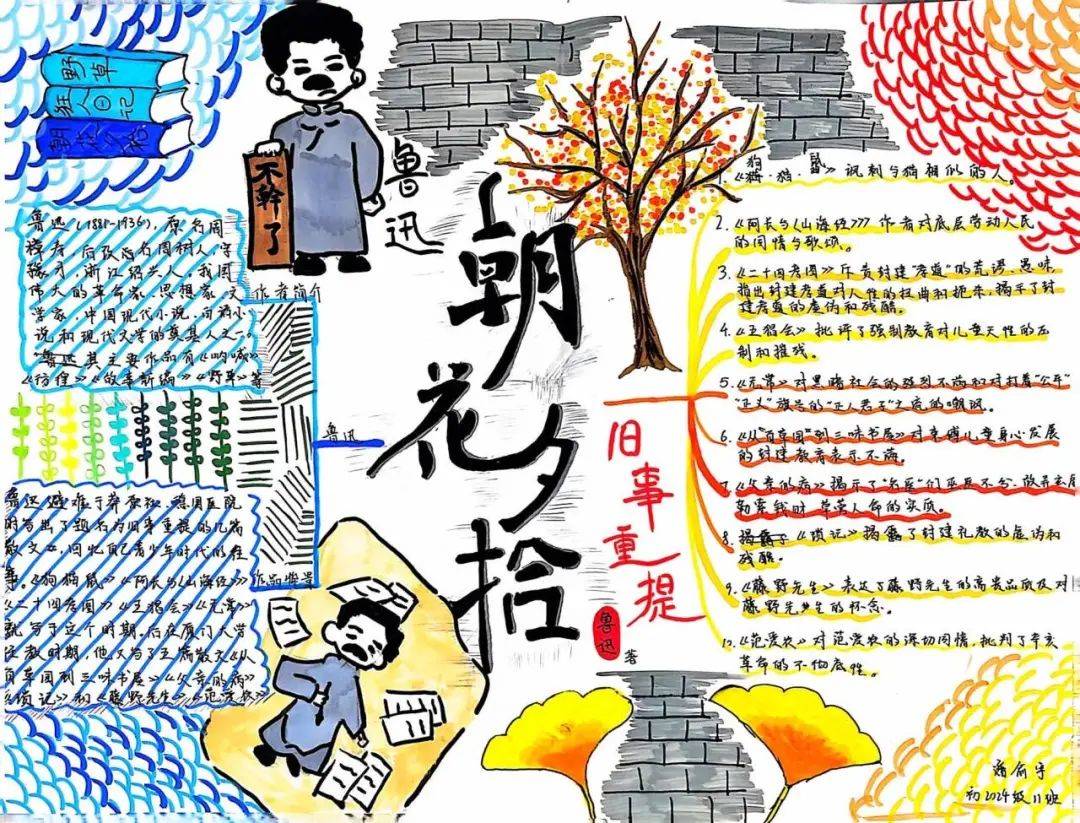 野草
狂人日记
朝花夕拾
不幹了
鲁迅
朝花夕拾
旧事重提
鲁迅
著
鲁迅(1881-1936),原名周
樟寿,后改名周树人,字
豫才,浙江绍兴人,我国
伟大的革命家、思想家、文
学家,中国现代小说、白话小
说和现代文学的奠基人之一。
鲁迅其主要作品有《呐喊》
《彷徨》《故事新编》《野草》等
作者简介
鲁迅
鲁迅避难于莽原社、德国医院
时写出了题名为旧事重提的几篇
散文,回忆自己青少年时代的往
事。《狗猫鼠》《阿长与《山海经》》
《二十四孝图》《五猖会》《无常》
就写于这个时期,后在厦门大学
任教时期,他又写了五篇散文《从
百草园到三味书屋》《父亲的病》
《琐记》和《藤野先生》《范爱农》
作品背景
1.《狗·猫·鼠》讽刺与猫相似的人。
2.《阿长与《山海经》》作者对底层劳动人民
的同情与歌颂。
3.《二十四孝图》斥责封建"孝道"的荒谬、愚昧,
指出封建孝道对人性的扭曲和扼杀,揭示了封
建孝道的虚伪和残酷。
4.《五猖会》批评了强制教育对儿童天性的压
制和摧残。
5.《无常》对黑暗社会的强烈不满和对打着"公平"
"正义"旗号的"正人君子"之流的嘲讽。
6.《从"百草园"到三味书屋》对束缚儿童身心发展
的封建教育表示不满。
7.《父亲的病》揭示了"名医"们巫医不分、故弄玄虚、
勒索钱财、草菅人命的实质。
8.《琐记》揭露了封建礼教的虚伪和
残酷。
9.《藤野先生》表达了藤野先生的高贵品质及对
藤野先生的怀念。
10.《范爱农》对范爱农的深切同情,批判了辛亥
革命的不彻底性。
初2024级11班